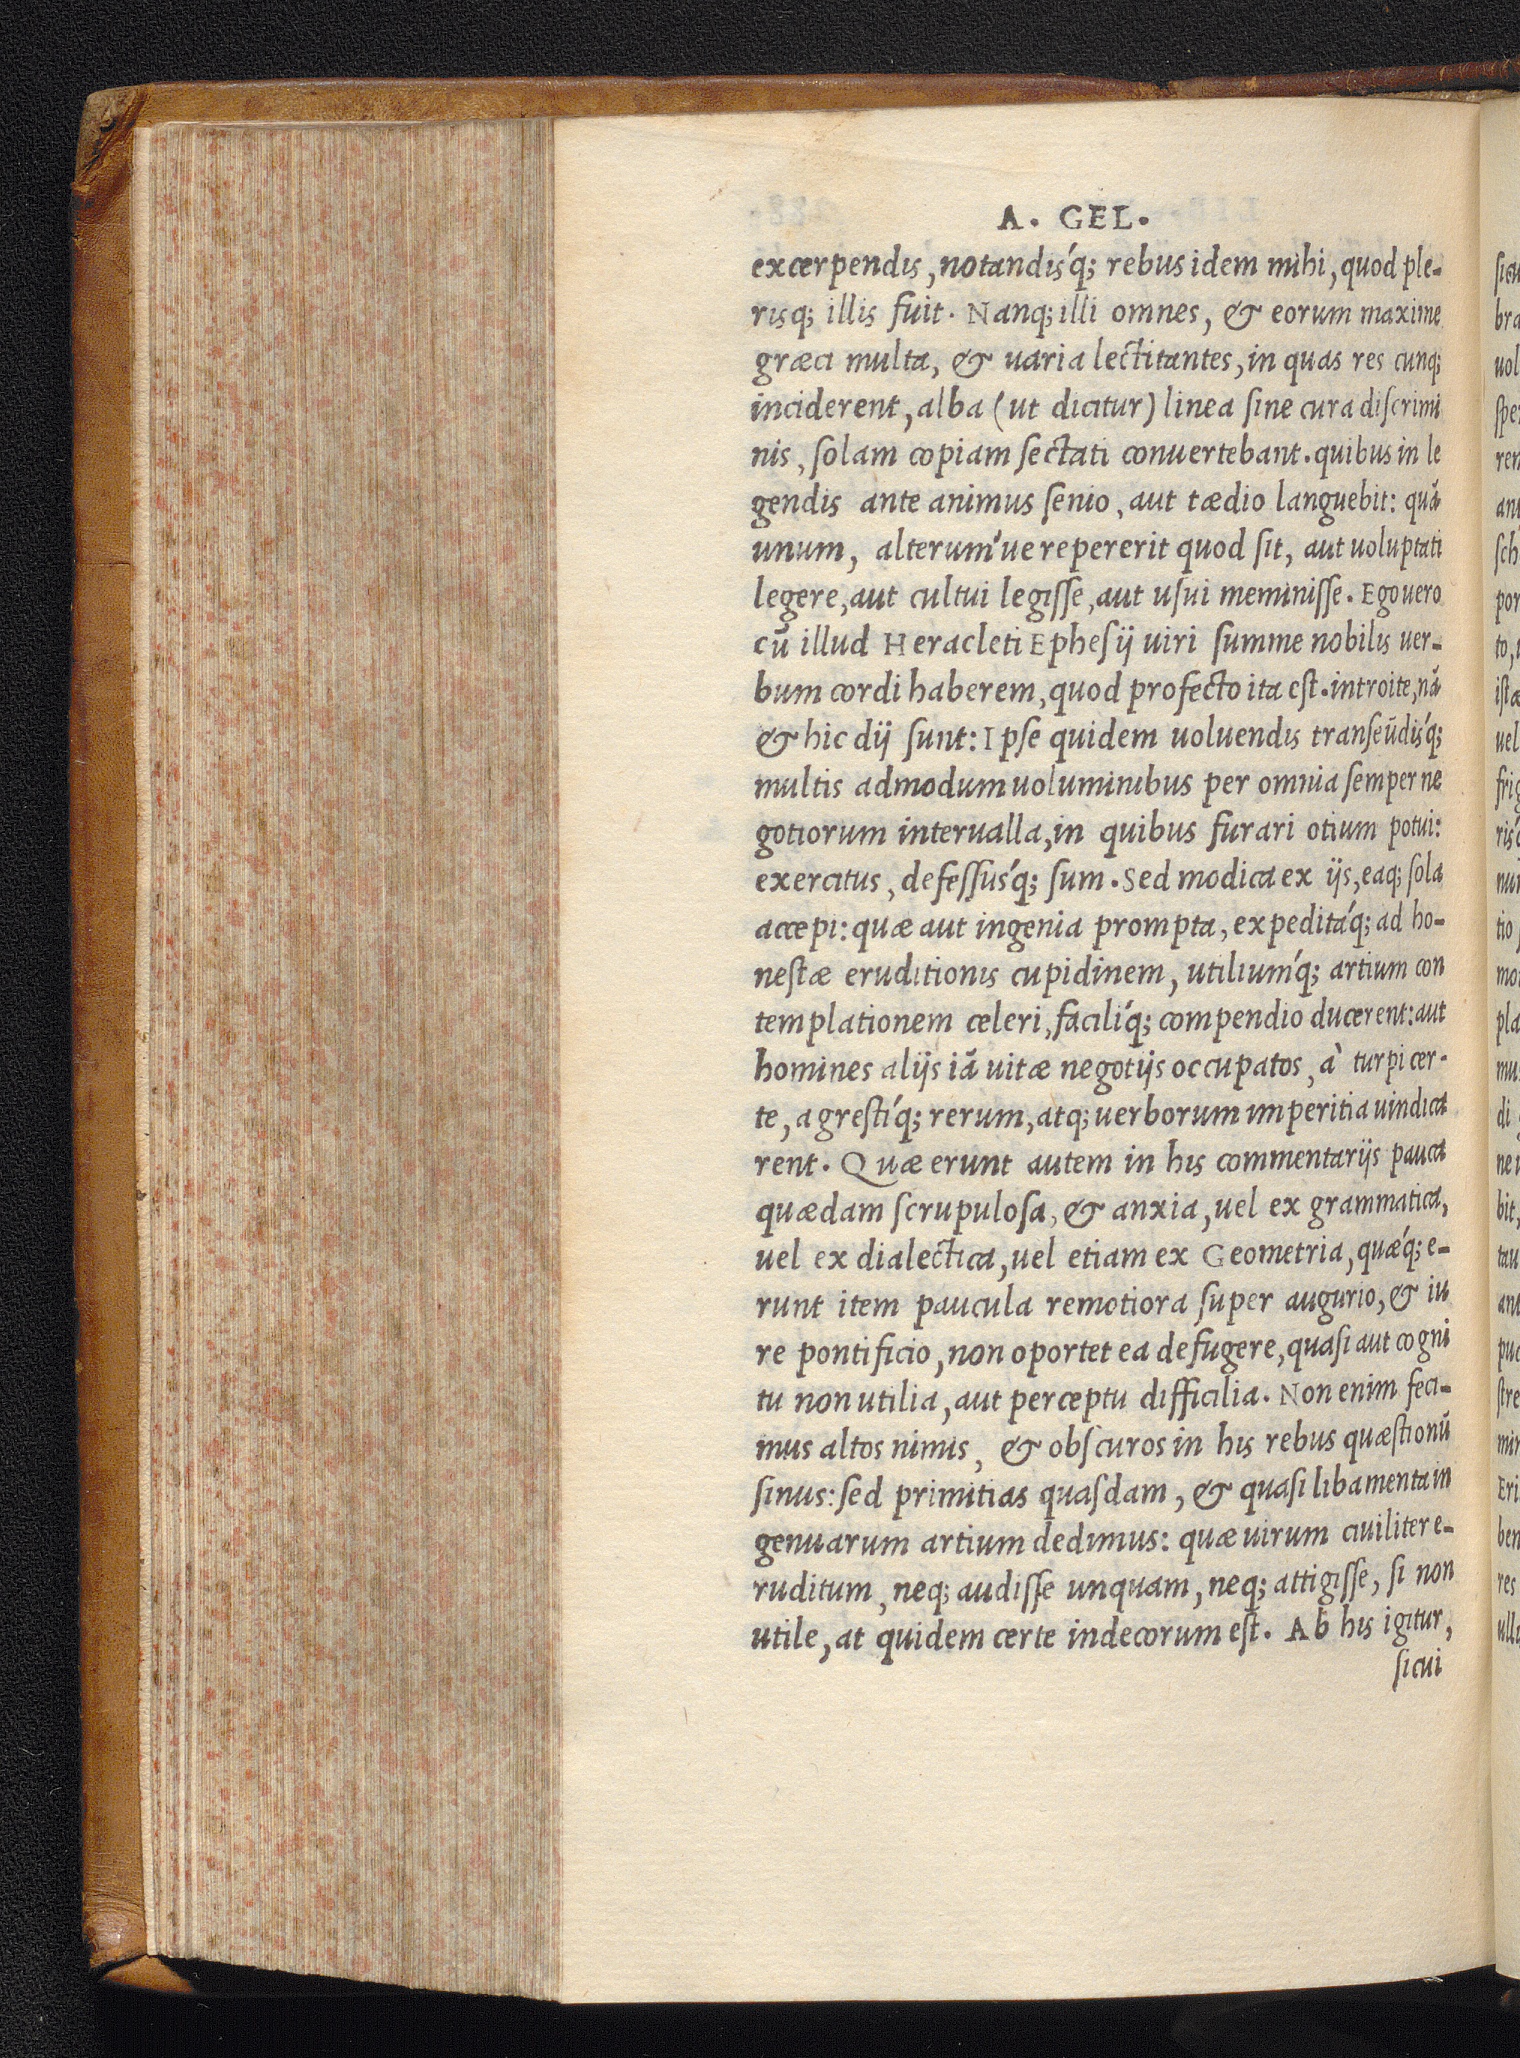 A. GEL.
excerpendis, notandisq́; rebus idem mihi, quod ple-
risq; illis fuit. Nanq; illi omnes, & eorum maxime
græci multa, & uaria lectitantes, in quas res cunq;
inciderent, alba (ut dicitur) linea sine cura discrimi
nis, solam copiam sectati conuertebant. quibus in le
gendis ante animus senio, aut tædio languebit: quã
unum, alterum'ue repererit quod sit, aut uoluptati
legere, aut cultui legisse, aut usui meminisse. Ego uero
cũ illud Heracleti Ephesij uiri summe nobilis uer-
bum cordi haberem, quod profecto ita est. introite, nã
& hic dij sunt: Ipse quidem uoluendis transeũdisq́;
multis admodum uoluminibus per omnia semper ne
gotiorum interualla, in quibus furari otium potui:
exercitus, defessusq́; sum. Sed modica ex ijs, eaq; sola
accepi: quæ aut ingenia prompta, expeditaq́; ad ho-
nestæ eruditionis cupidinem, utiliumq́; artium con
templationem celeri, faciliq́; compendio ducerent: aut
homines alijs iã uitæ negotijs occupatos, à turpi cer-
te, agrestiq́; rerum, atq; uerborum imperitia uindica
rent. Quæ erunt autem in his commentarijs pauca
quædam scrupulosa, & anxia, uel ex grammatica,
uel ex dialectica, uel etiam ex Geometria, quæq́; e-
runt item paucula remotiora super augurio, & iu
re pontificio, non oportet ea defugere, quasi aut cogni
tu non utilia, aut perceptu difficilia. Non enim feci-
mus altos nimis, & obscuros in his rebus quæstionũ
sinus: sed primitias quasdam, & quasi libamenta in
genuarum artium dedimus: quæ uirum ciuiliter e-
ruditum, neq; audisse unquam, neq; attigisse, si non
utile, at quidem certe indecorum est. Ab his igitur,
si cui